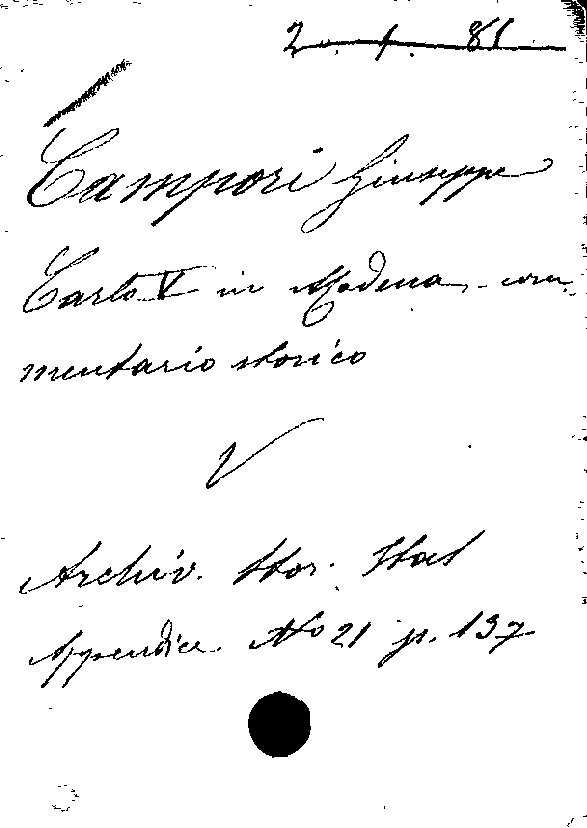 2. 1. 81
Campori Giuseppe
Carlo V in Modena, com-
mentario storico
V
Archiv. Stor. Ital
Appendice. No 21 p. 137